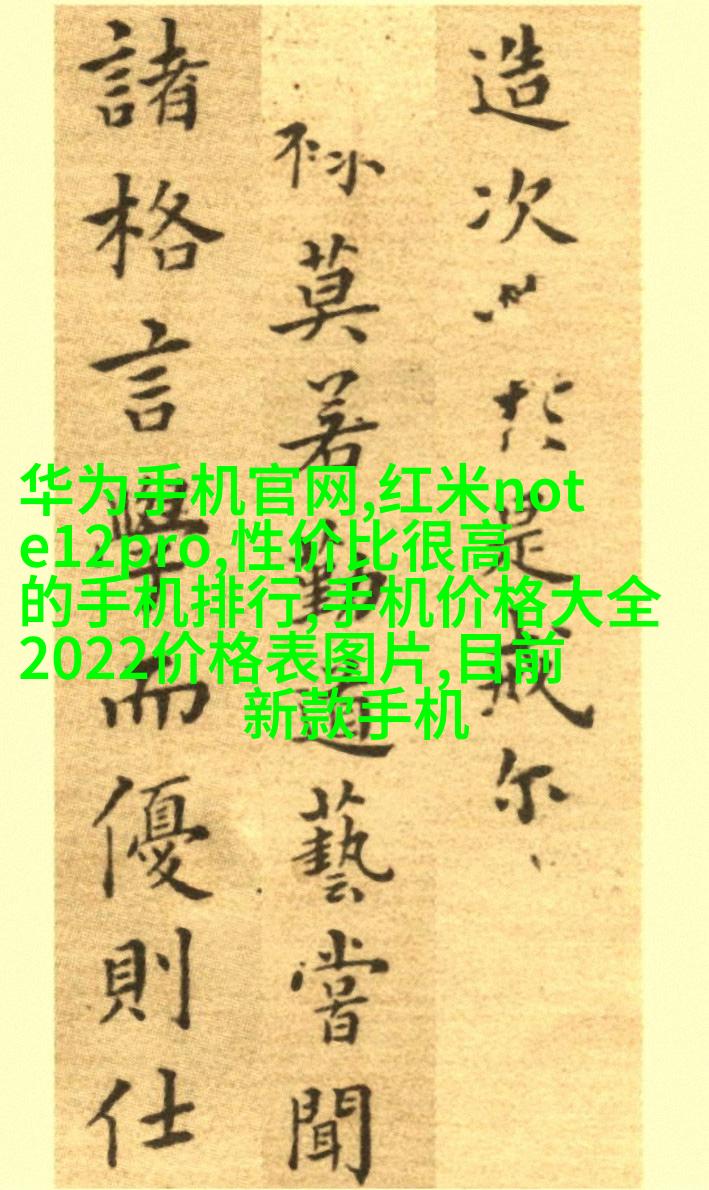 造次必於是戒尔
莫若勤道藝嘗聞
諸格言學而優則仕
华为手机官网,红米not
e12pro,性价比很高
的手机排行,手机价格大全
2022价格表图片,目前
新款手机